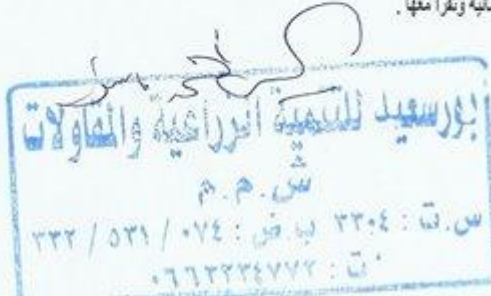 وتقرأ معها .
بورسعيد للتنمية الزراعية والمقاولات
ش . م . م
س . ت : ٣٣٠٤ ب . ض : ٠٧٤ / ٥٣١ / ٣٣٢
ت : ٠٦٦٣٢٣٤٧٧٢